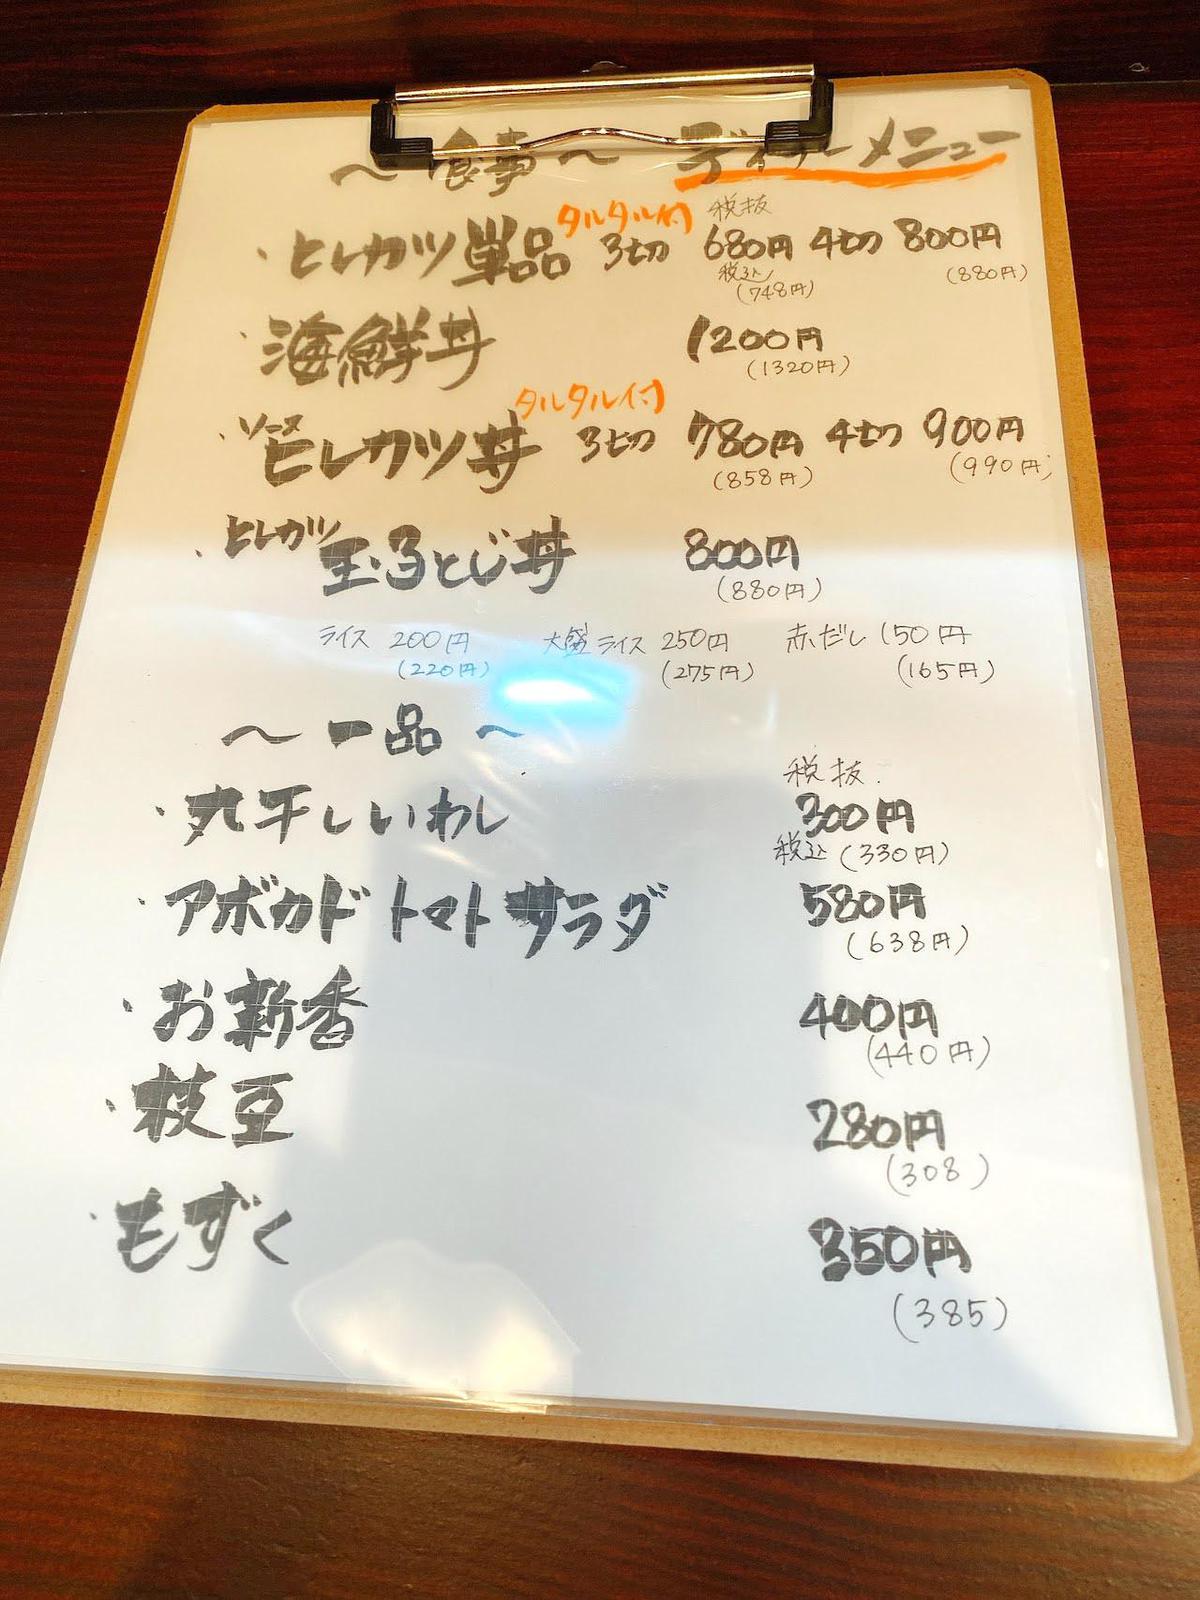 〜食事〜 ディナーメニュー
タルタル付 税抜
・ヒレカツ単品 3切 680円 4切 800円
税込(748円) (880円)
・海鮮丼 1200円
(1320円)
タルタル付
・ソースヒレカツ丼 3切 780円 4切 900円
(858円) (990円)
・ヒレカツ玉子とじ丼 800円
(880円)
ライス 200円 大盛ライス 250円 赤だし 150円
(220円) (275円) (165円)
〜一品〜
税抜
・丸干しいわし 300円
税込(330円)
・アボカドトマトサラダ 580円
(638円)
・お新香 400円
(440円)
・枝豆 280円
(308)
・もずく 350円
(385)